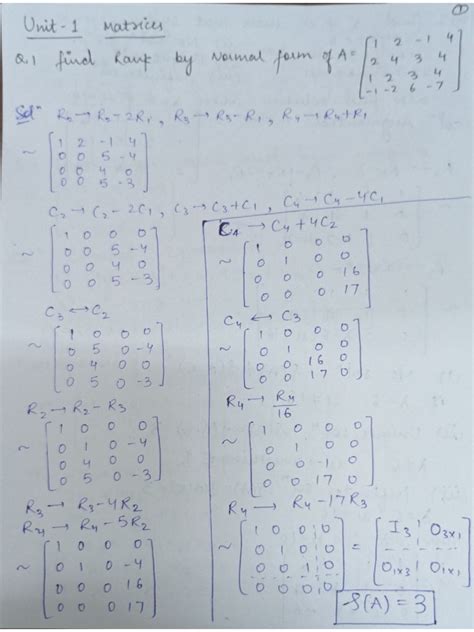 ①
Unit-1 Matrices
Q.1 find Rank by Normal form of A = [1 2 -1 4
2 4 3 4
1 2 3 4
-1 -2 6 -7]
Solⁿ R₂ → R₂-2R₁, R₃ → R₃-R₁, R₄ → R₄+R₁
~ [1 2 -1 4
0 0 5 -4
0 0 4 0
0 0 5 -3]
C₂ → C₂-2C₁, C₃ → C₃+C₁, C₄ → C₄-4C₁
~ [1 0 0 0
0 0 5 -4
0 0 4 0
0 0 5 -3]
C₃ ↔ C₂
~ [1 0 0 0
0 5 0 -4
0 4 0 0
0 5 0 -3]
R₂ → R₂-R₃
~ [1 0 0 0
0 1 0 -4
0 4 0 0
0 5 0 -3]
R₃ → R₃-4R₂
R₄ → R₄-5R₂
~ [1 0 0 0
0 1 0 -4
0 0 0 16
0 0 0 17]
C₄ → C₄+4C₂
~ [1 0 0 0
0 1 0 0
0 0 0 16
0 0 0 17]
C₄ ↔ C₃
~ [1 0 0 0
0 1 0 0
0 0 16 0
0 0 17 0]
R₄ → R₄/16
~ [1 0 0 0
0 1 0 0
0 0 1 0
0 0 17 0]
R₄ → R₄-17R₃
~ [1 0 0 0
0 1 0 0
0 0 1 0
0 0 0 0] = [I₃ O₃ₓ₁
O₁ₓ₃ O₁ₓ₁]
ρ(A) = 3